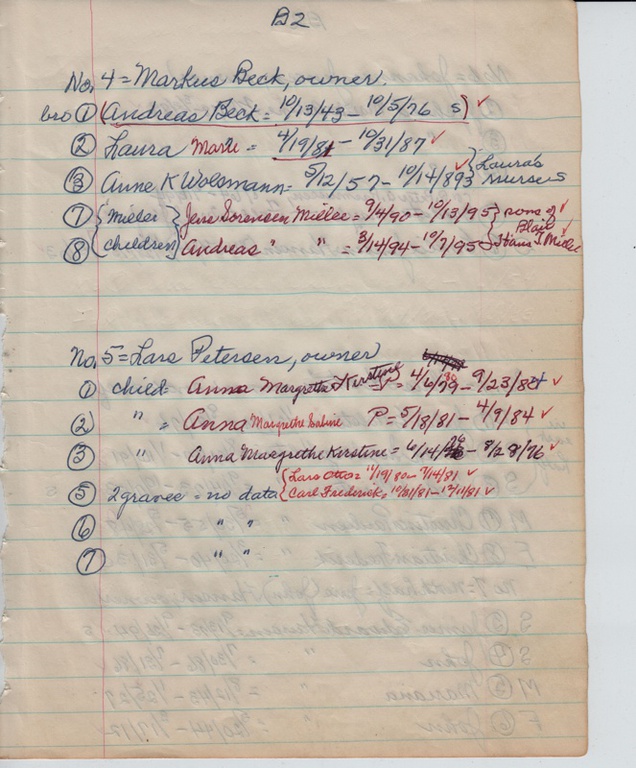 B2
No. 4 = Markus Beck, owner.
bro ① (Andreas Beck = 10/13/43 - 10/5/76 s) ✓
② Laura Marie = 4/19/81 - 10/31/87 ✓
③ Anne K Wolsmann = 5/12/57 - 10/14/893 ✓ } Laura's nurse s
⑦ { Miller } Jens Sorensen Miller = 9/4/90 - 10/13/95 } sons of ✓
⑧ { children } Andreas " " = 3/14/94 - 10/7/95 } Blair Hans J Miller ✓
No. 5 = Lars Petersen, owner
① child = Anna Margrethe Kerstine = P = 4/6/79 - 9/23/84 ✓
② " = Anna Margrethe Sabine P = 5/18/81 - 4/9/84 ✓
③ " Anna Margrethe Kerstine = 6/14/76 - 8/28/76 ✓
⑤ 2 graves = no data { Lars Otto = 11/19/80 - 9/14/81 ✓
Carl Frederick, 10/31/81 - 12/11/81 ✓
⑥ " "
⑦ " "